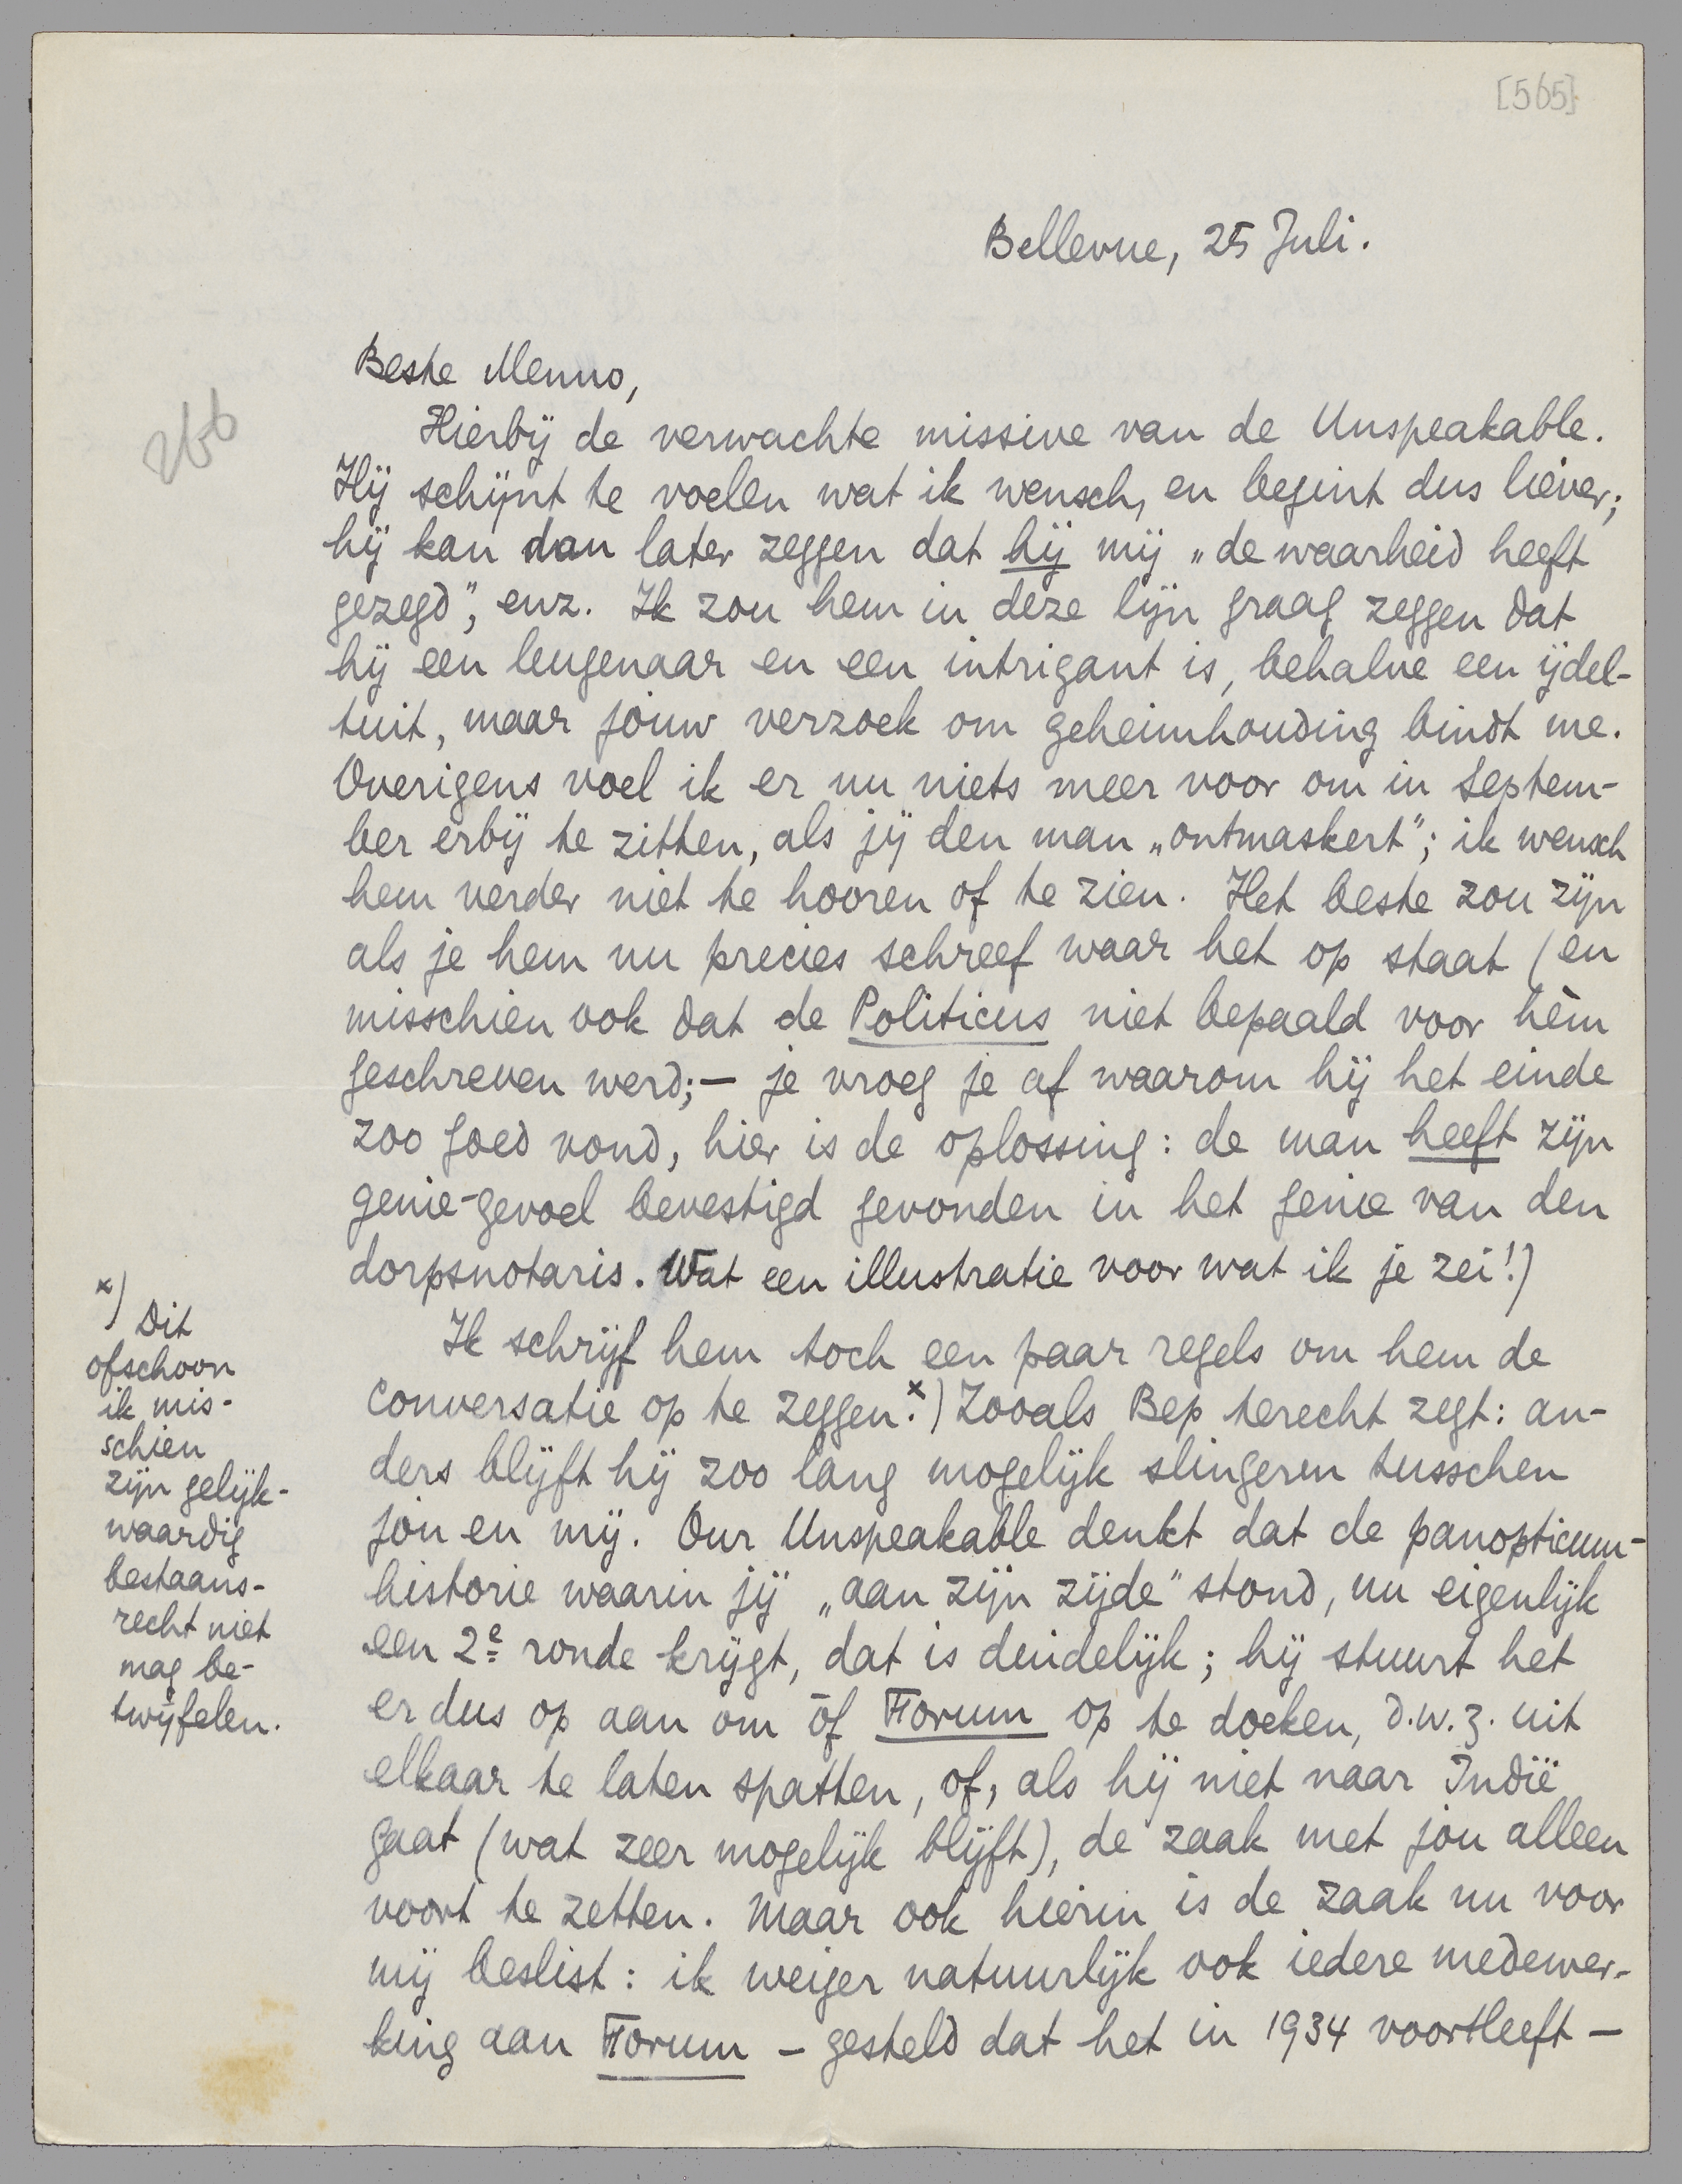 [565]
Bellevue, 25 Juli.
Beste Menno,
266
Hierbij de verwachte missive van de Unspeakable.
Hij schijnt te voelen wat ik wensch, en begint dus liever;
hij kan dan later zeggen dat hij mij „de waarheid heeft
gezegd”, enz. Ik zou hem in deze lijn graag zeggen dat
hij een leugenaar en een intrigant is, behalve een ijdel-
tuit, maar jouw verzoek om geheimhouding bindt me.
Overigens voel ik er nu niets meer voor om in Septem-
ber erbij te zitten, als jij den man „ontmaskert”; ik wensch
hem verder niet te hooren of te zien. Het beste zou zijn
als je hem nu precies schreef waar het op staat (en
misschien ook dat de Politicus niet bepaald voor hèm
geschreven werd; — je vroeg je af waarom hij het einde
zoo goed vond, hier is de oplossing: de man heeft zijn
genie-gevoel bevestigd gevonden in het genie van den
dorpsnotaris. Wat een illustratie voor wat ik je zei!)
Ik schrijf hem toch een paar regels om hem de
conversatie op te zeggen.x) Zooals Bep terecht zegt: an-
ders blijft hij zoo lang mogelijk slingeren tusschen
jou en mij. Our Unspeakable denkt dat de panopticum-
historie waarin jij „aan zijn zijde” stond, nu eigenlijk
een 2e ronde krijgt, dat is duidelijk; hij stuurt het
er dus op aan om óf Forum op te doeken, d.w.z. uit
elkaar te laten spatten, of, als hij niet naar Indië
gaat (wat zeer mogelijk blijft), de zaak met jou alleen
voort te zetten. Maar ook hierin is de zaak nu voor
mij beslist: ik weiger natuurlijk ook iedere medewer-
king aan Forum – gesteld dat het in 1934 voortleeft –
x) Dit
ofschoon
ik mis-
schien
zijn gelijk-
waardig
bestaans-
recht niet
mag be-
twijfelen.